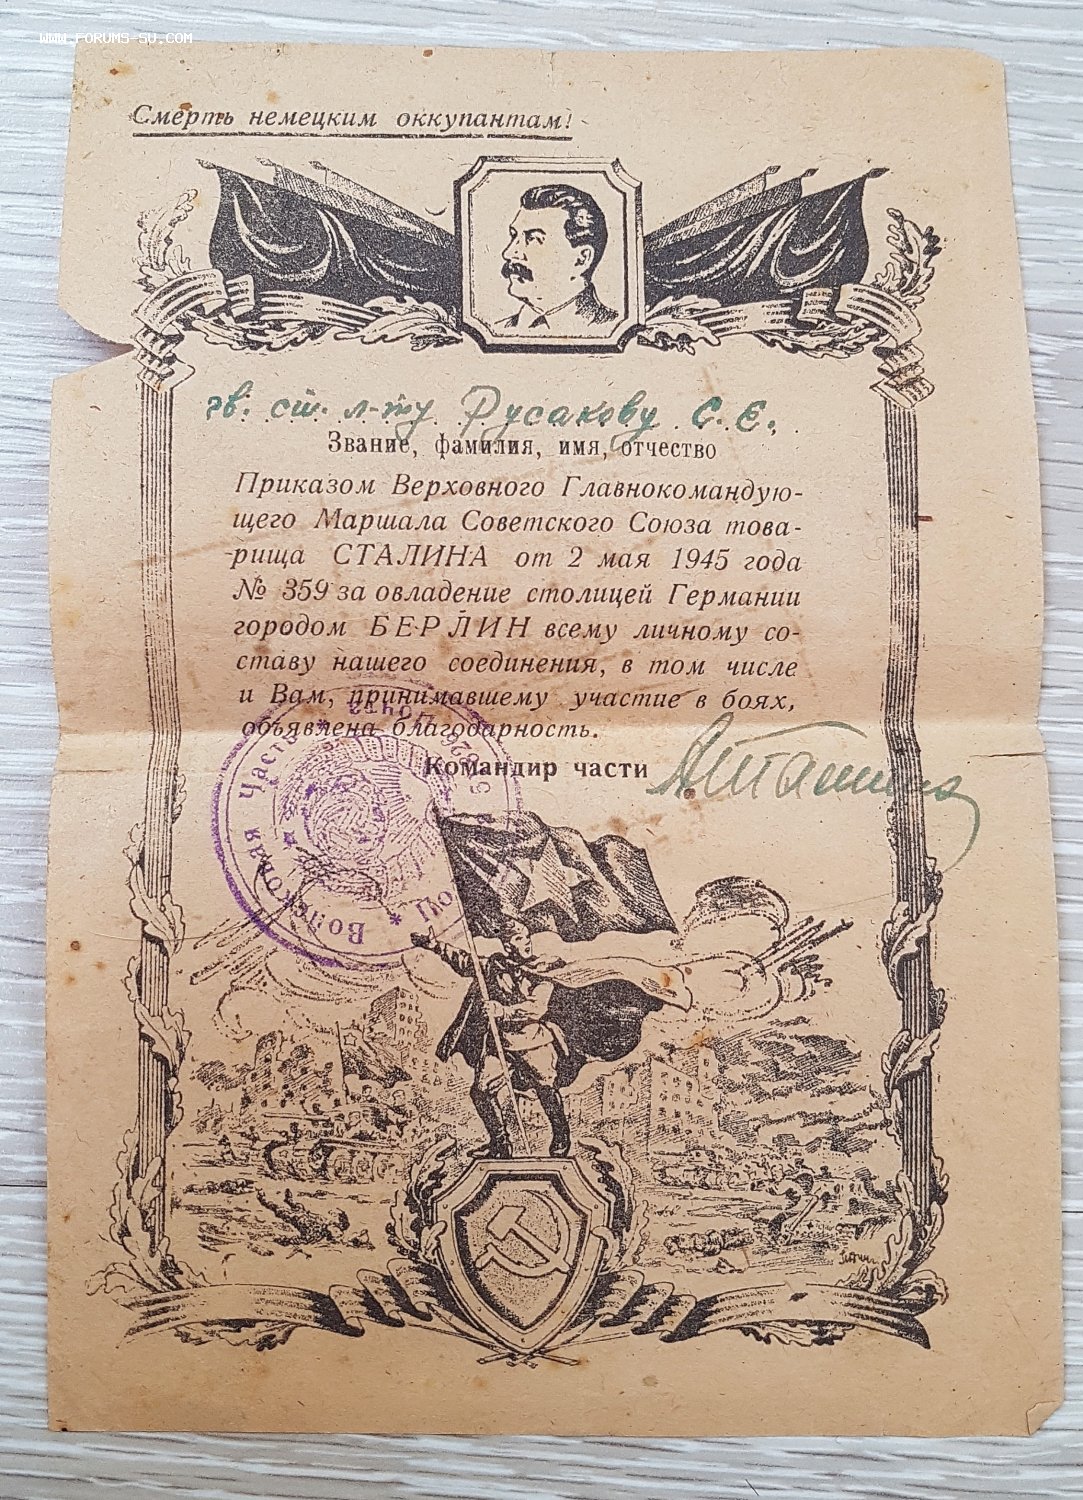 WWW.FORUMS-SU.COM
Смерть немецким оккупантам!
гв. ст. л-ту Русакову С. Е.
Звание, фамилия, имя, отчество
Приказом Верховного Главнокомандую-
щего Маршала Советского Союза това-
рища СТАЛИНА от 2 мая 1945 года
№ 359 за овладение столицей Германии
городом БЕРЛИН всему личному со-
ставу нашего соединения, в том числе
и Вам, принимавшему участие в боях,
объявлена благодарность.
Командир части
Войсковая Часть